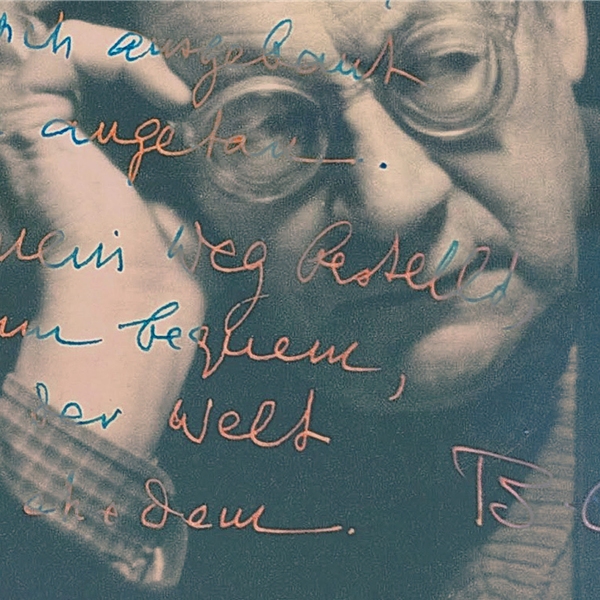 ausgebaut
angetan.
mein Weg bestellt
bequem,
der Welt
ehedem.